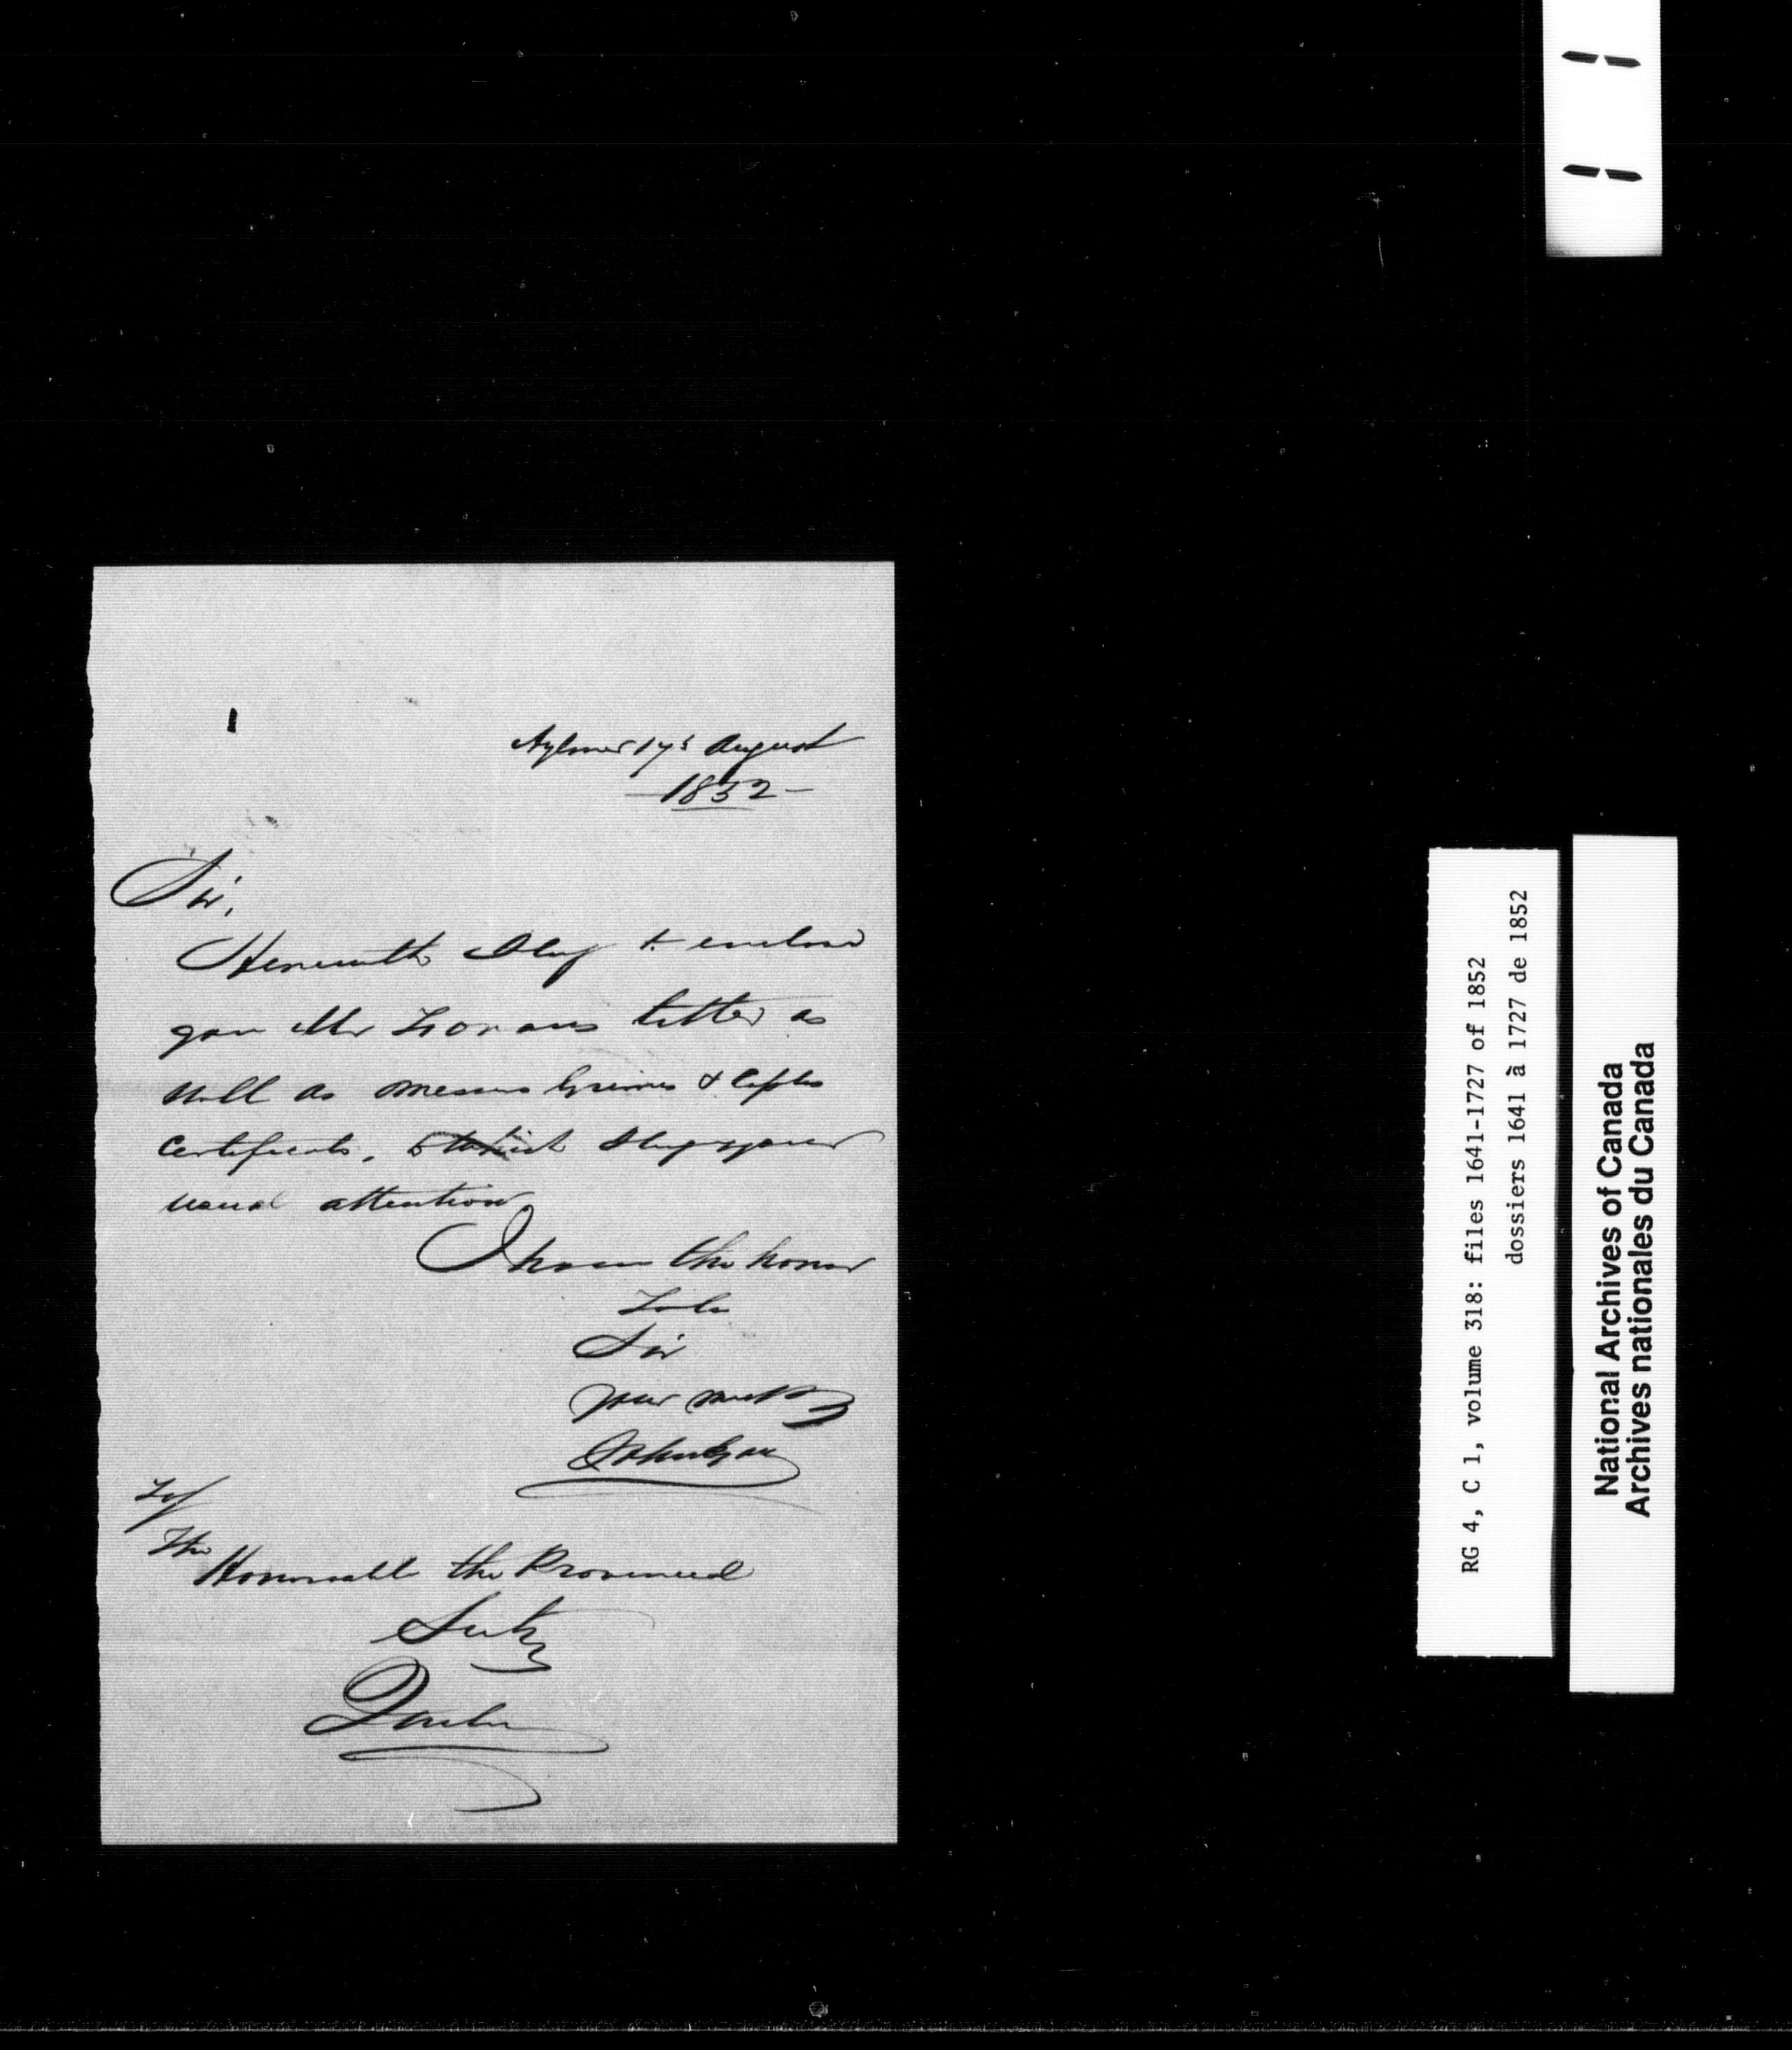 Aylmer 17th August
1852
Sir,
Herewith I beg to enclose
you Mr letter as
well as Messrs Grimes &
Certificates, to which I beg your
usual attention
I have the honor
To be
Sir
Your
To/
The
Honorable the Provincial
Secty
Quebec
RG 4, C 1, volume 318: files 1641-1727 of 1852
dossiers 1641 à 1727 de 1852
National Archives of Canada
Archives nationales du Canada